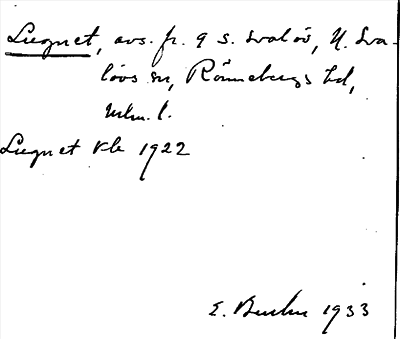 Lugnet, avs. fr. 9 s. Svalöv, N. Sva-
lövs sn, Rönnebergs hd,
Mlm. l.
Lugnet Kb 1922
E. 1933